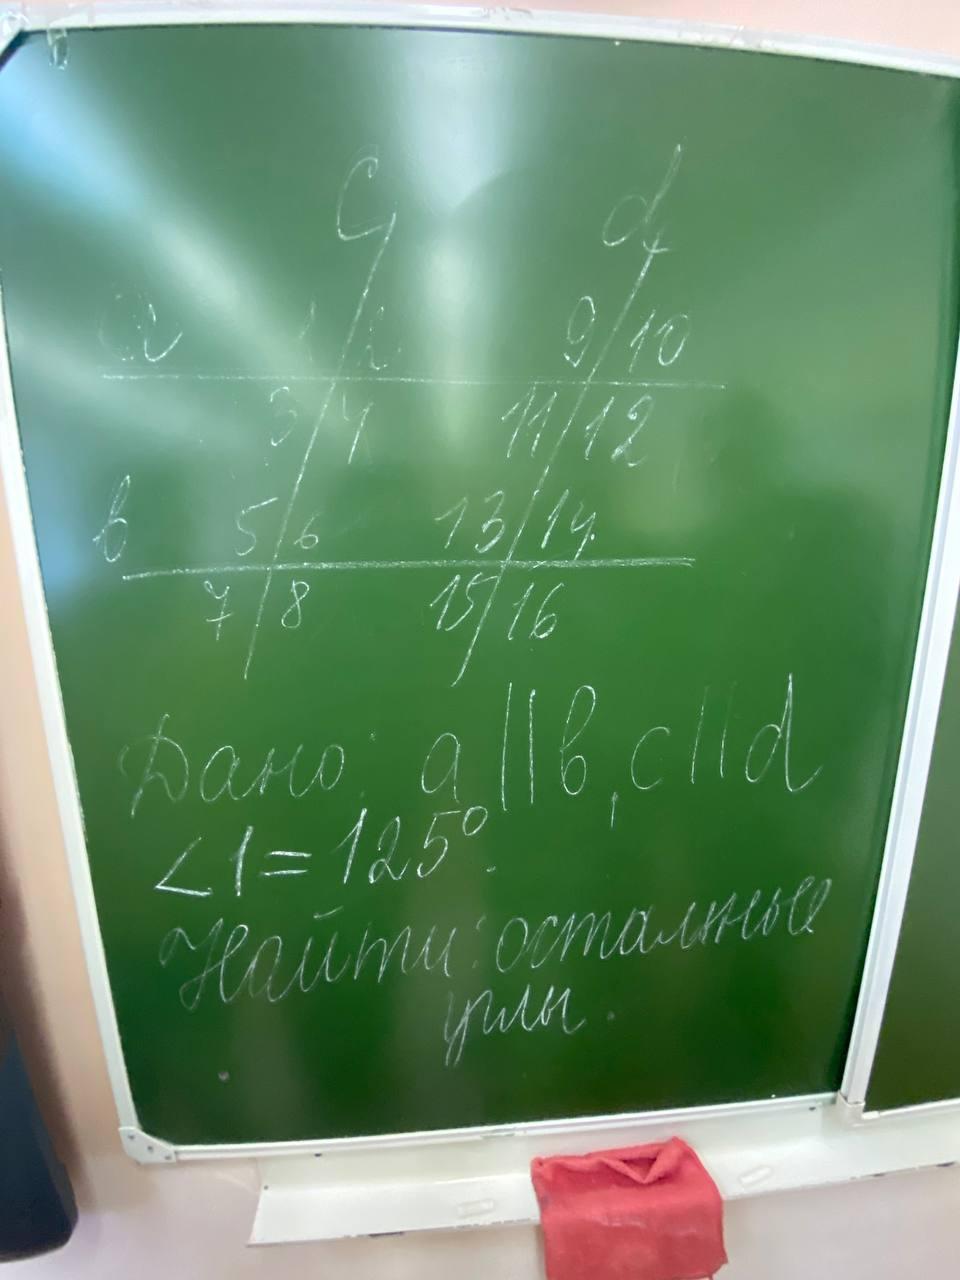 c d
a 1 2 9 10
3 4 11 12
в 5 6 13 14
7 8 15 16
Дано: a||b, c||d
∠1=125°.
Найти: осталные
углы.